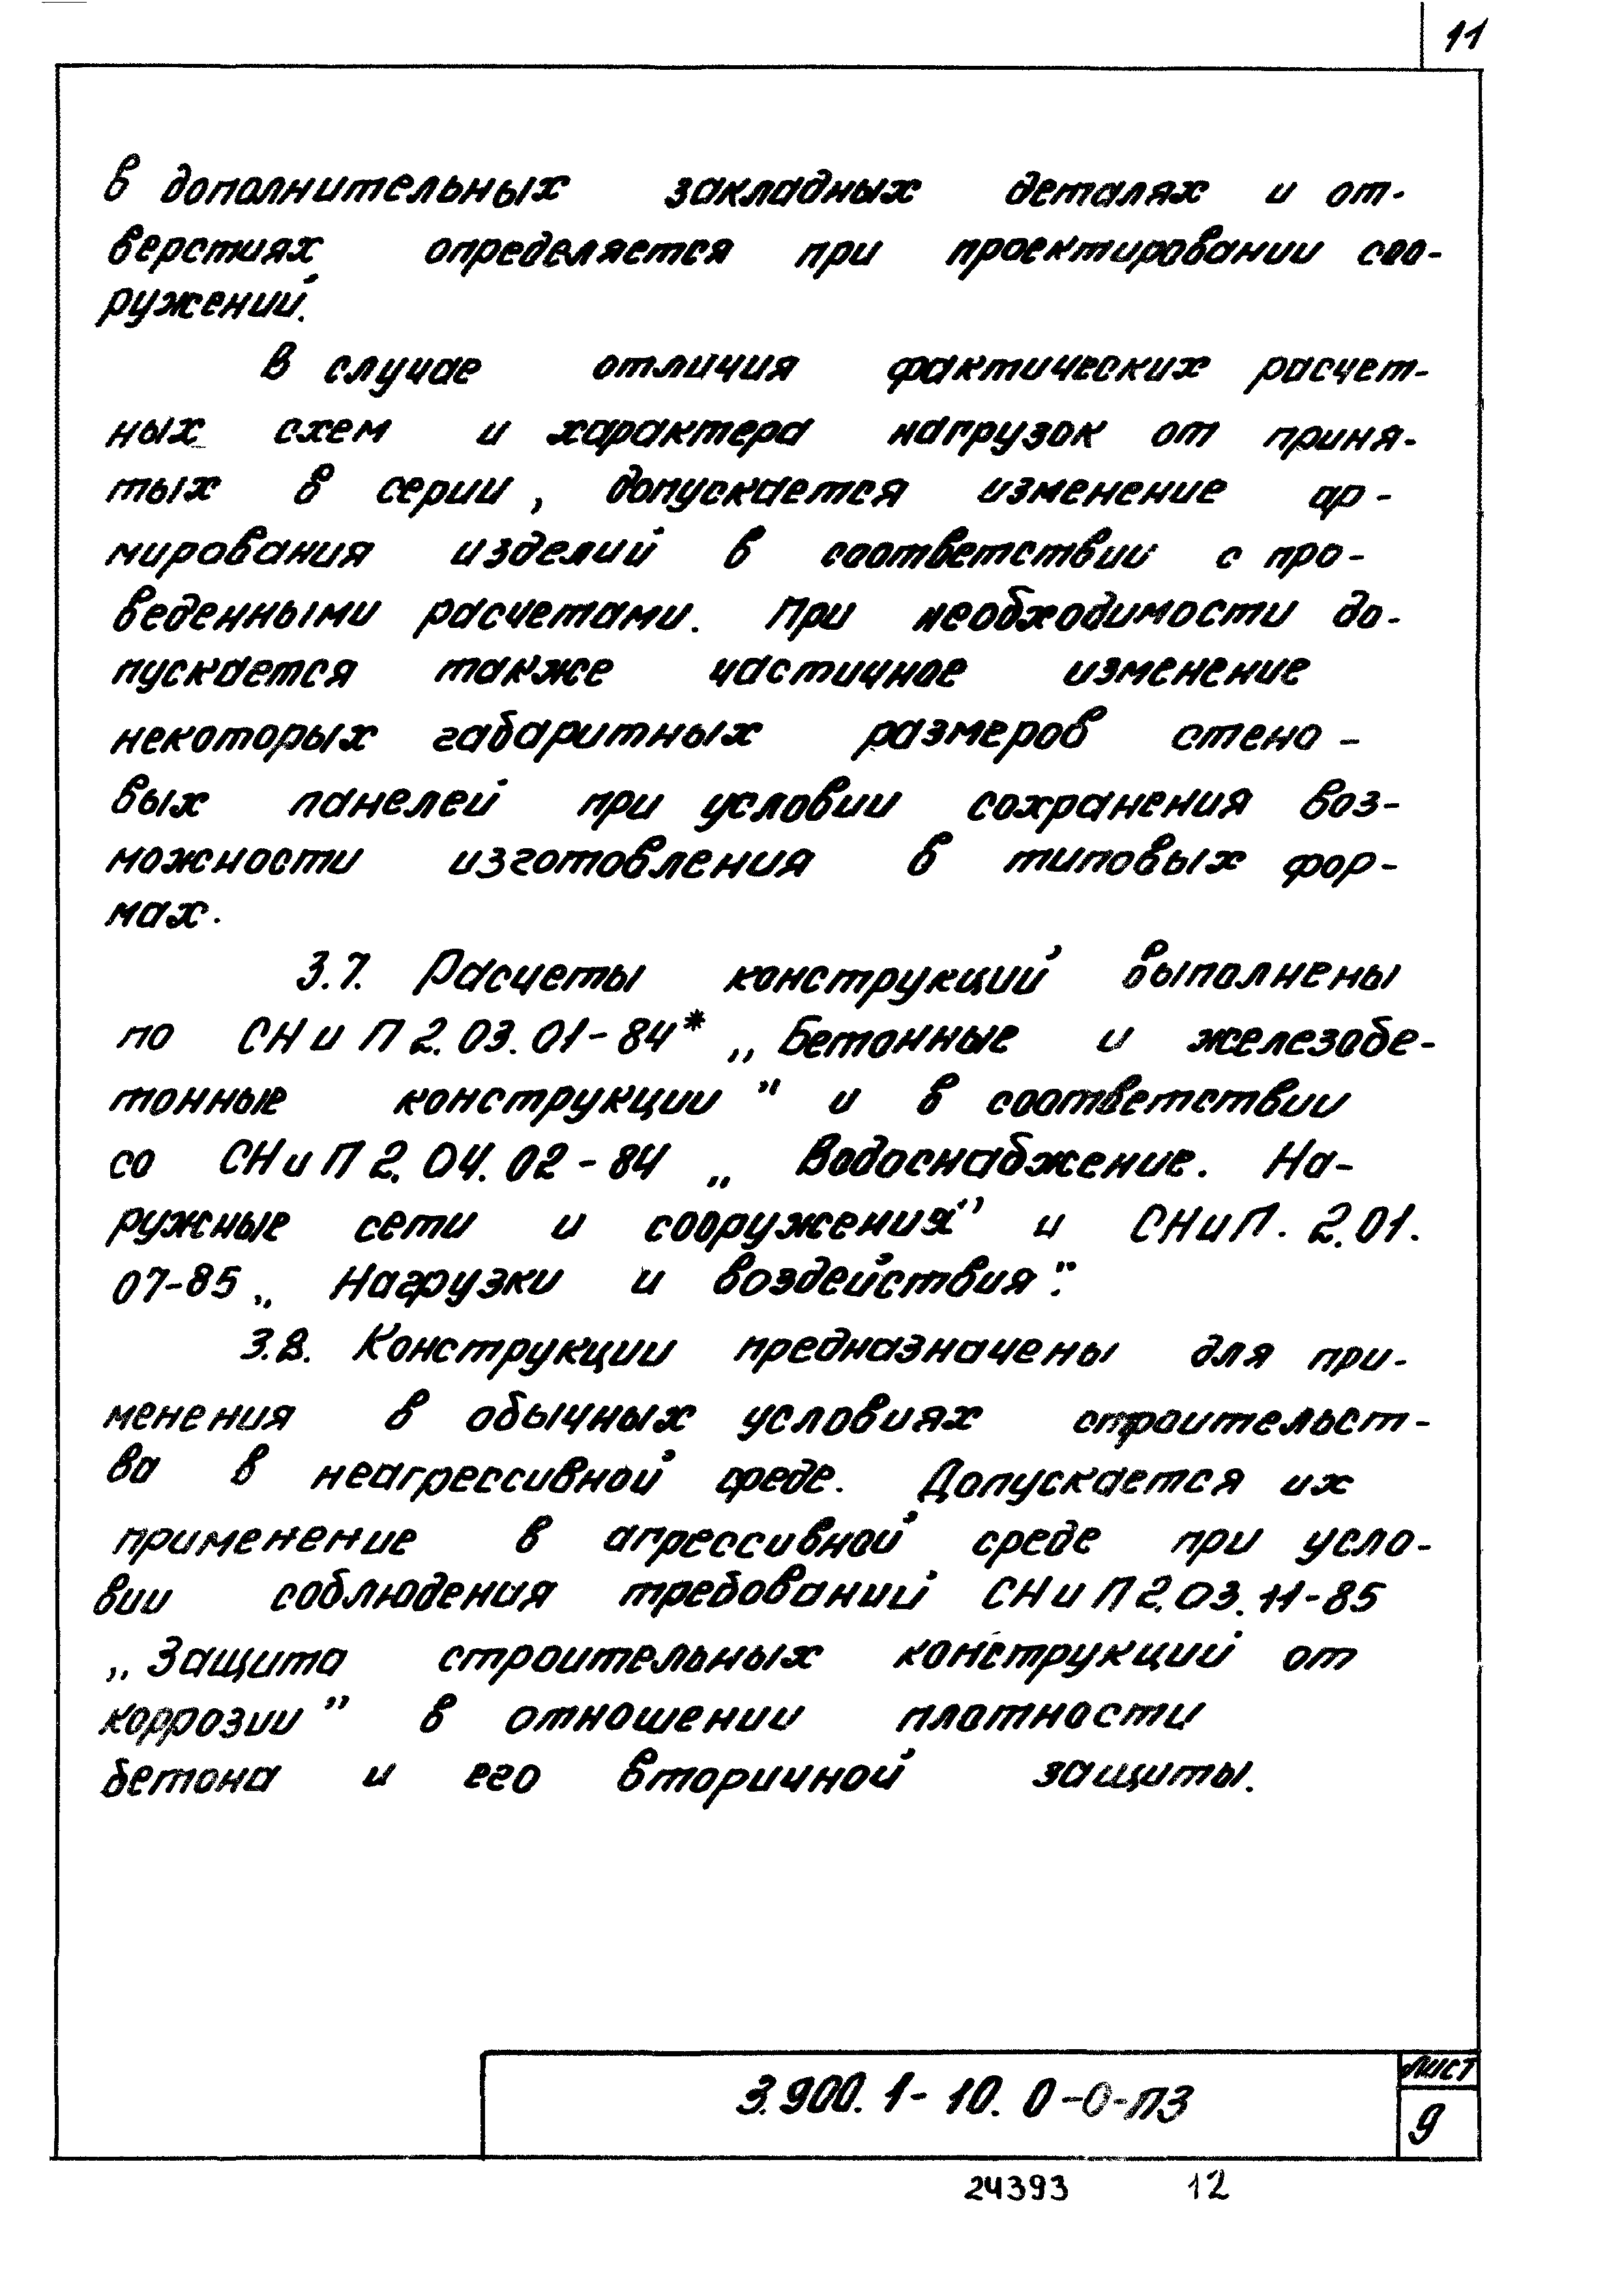 11
в дополнительных закладных деталях и от-
верстиях определяется при проектировании соо-
ружений.
В случае отличия фактических расчет-
ных схем и характера нагрузок от приня-
тых в серии, допускается изменение ар-
мирования изделий в соответствии с про-
веденными расчетами. При необходимости до-
пускается также частичное изменение
некоторых габаритных размеров стено-
вых панелей при условии сохранения воз-
можности изготовления в типовых фор-
мах.
3.7. Расчеты конструкций выполнены
по СНиП 2.03.01-84* „Бетонные и железобе-
тонные конструкции" и в соответствии
со СНиП 2.04.02-84 „Водоснабжение. На-
ружные сети и сооружения" и СНиП. 2.01.
07-85 „Нагрузки и воздействия".
3.8. Конструкции предназначены для при-
менения в обычных условиях строительст-
ва в неагрессивной среде. Допускается их
применение в агрессивной среде при усло-
вии соблюдения требований СНиП 2.03.11-85
„Защита строительных конструкций от
коррозии" в отношении плотности
бетона и его вторичной защиты.
3.900.1-10.0-0-ПЗ
лист
9
24393 12